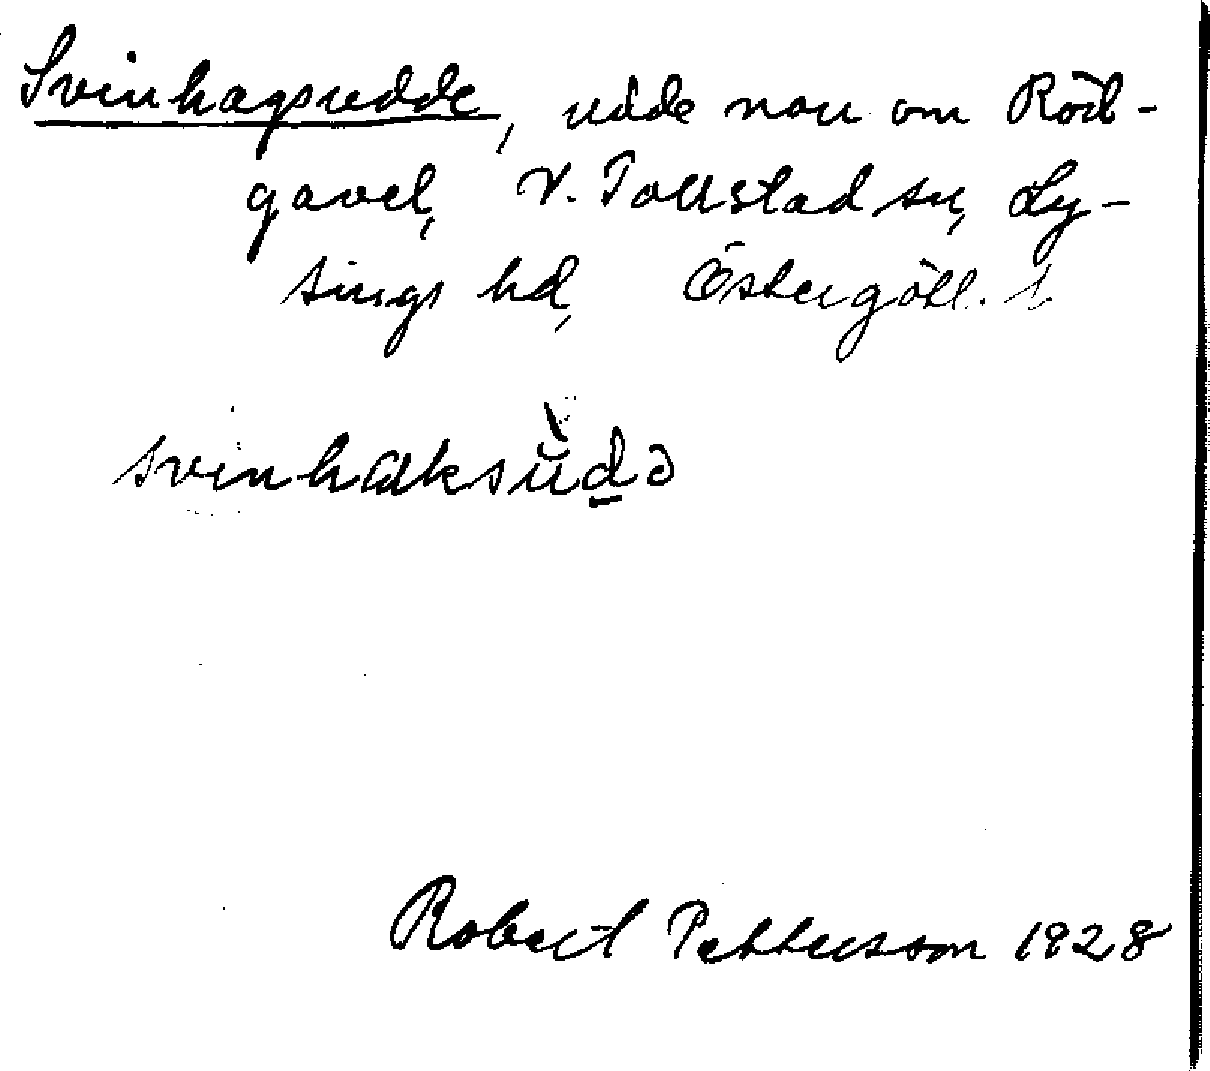 Svinhagsudde, udde norr om Röd-
gavel, V. Tollstad sn, Ly-
sings hd, Östergötl. l.
svinhɑksùd̲ə
Robert Pettersson 1928